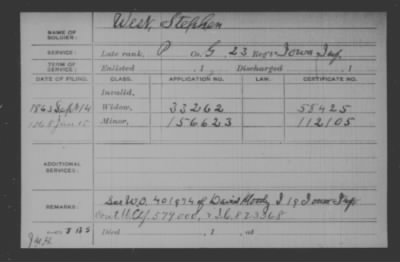 NAME OF SOLDIER: West, Stephen
SERVICE: Late rank, P Co. G, 23 Reg't Iowa Inf.
TERM OF SERVICE: Enlisted , 1 , Discharged , 1
DATE OF FILING. CLASS. APPLICATION NO. LAW. CERTIFICATE NO.
Invalid,
1863 Sept 14 Widow, 33262 55425
1868 Jan 15 Minor, 156623 112105
ADDITIONAL SERVICES:
REMARKS: See W.O. 401974 of David Moody I 19 Iowa Inf
577000, 836823868
Died , 1 , at